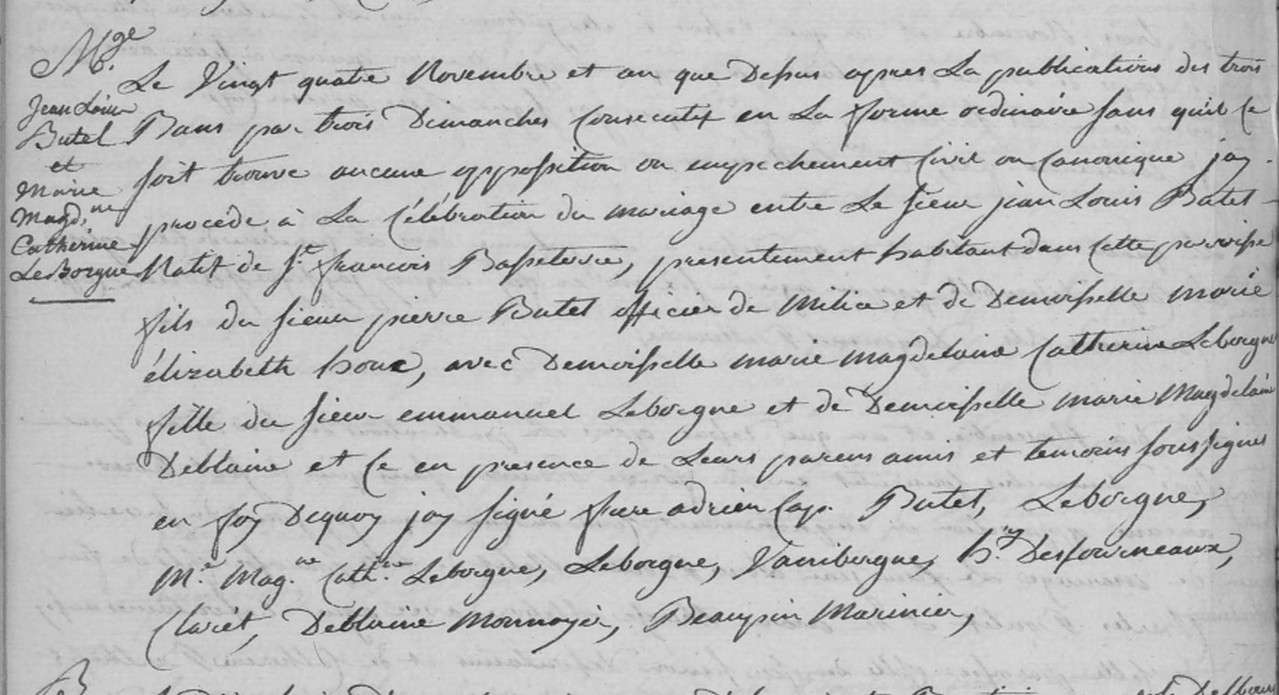 M.ge
Jean Louis
Butel
et
Marie
Magd.ne
Catherine
LeBorgne
Le Vingt quatre Novembre et an que Dessus apres La publications des trois
Bans par trois Dimanches Consecutif en La forme ordinaire sans quil Ce
soit trouve aucune opposition ou empechement Civil ou Canonique jay
procede à La Célébration du mariage entre Le sieur jean Louis Butel
Natif de St. francois Basseterre, presentement habitant dans Cette parroisse
fils du sieur pierre Butel officier de Milice et de Demoisselle Marie
élizabeth houe, avec Demoisselle marie magdelaine Catherine Leborgne
fille du sieur emmanuel Leborgne et de Demoisselle Marie Magdelaine
Deblaine et Ce en presence de Leurs parens amis et temoins soussignes
en foy Dequoy jay signé frere adrien Cap. Butel, Leborgne,
M.e Mag.ne Cath.ne Leborgne, Leborgne, Vaniborgne, h.ny Desfourneaux,
Clarét, Deblaine Monnoyér, Beaupin Marinier,